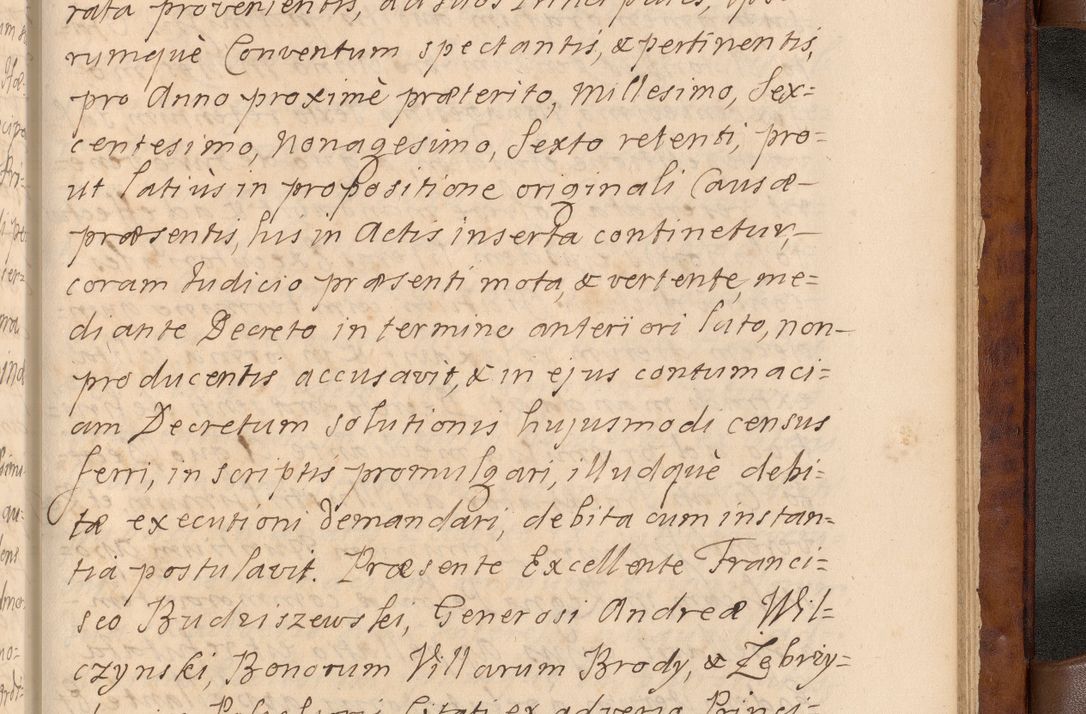 rata provenientis, ad suos Principales,
rumquè Conventum spectantis, & pertinentis,
pro Anno proximè præterito, Millesimo, Sex=
centesimo, Nonagesimo, Sexto retenti, pro=
ut latiùs in propositione originali Causæ–
præsentis, his in Actis inserta continetur,–
coram Iudicio præsenti mota, & vertente, me=
diante Decreto in termino anteriori lato, non–
producentis accusavit, & in ejus contumaci=
am Decretum solutionis hujusmodi census
ferri, in scriptis promulgari, illudquè debi=
tæ executioni demandari, debita cum instan=
tia postulavit. Præsente Excellente Franci=
sco Budziszewski, Generosi Andreæ Wil=
czynski, Bonorum Villarum Brody, & Zębrzy=
Citati ex adverso Princi=